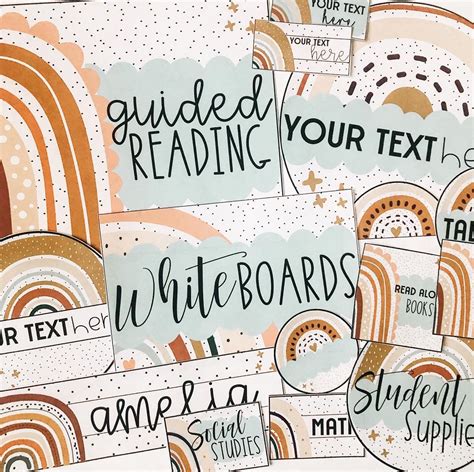 YOUR TEXT
here
YOUR TEXT
here
guided
READING
YOUR TEXT here
whiteBOARDS
READ ALO
BOOKS
YOUR TEXT here
amelia
Social
STUDIES
MATH
Student
Supplie